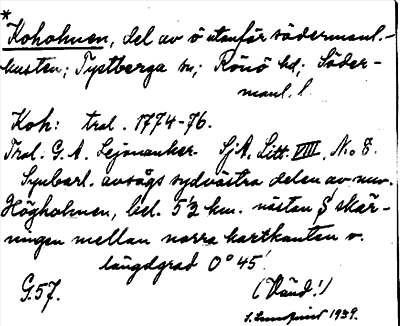 *Koholmen, del av ö utanför södermanl.-
kusten; Tystberga sn; Rönö hd; Söder-
manl. l.
Koh: tral. 1774-76.
Tral. G. A. Lejonanker. SjA, Litt. VIII, No 8.
Synbarl. avsågs sydvästra delen av nuv.
Högholmen, bel. 5½ km. nästan S skär-
ningen mellan norra kartkanten o.
längdgrad 0°45'.
G.57. (Vänd!)
S. Lundquist 1939.